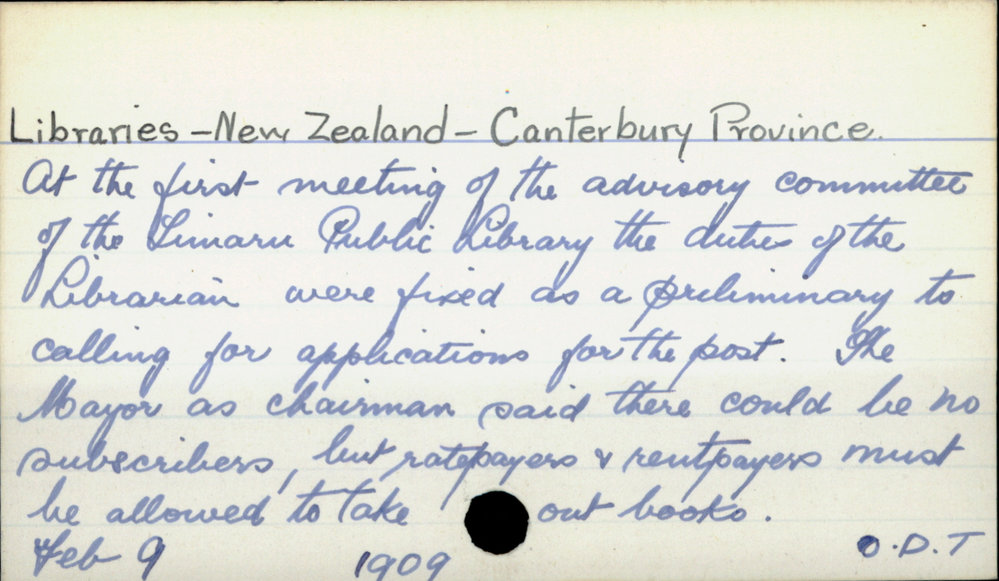 Libraries - New Zealand - Canterbury Province.
At the first meeting of the advisory committee
of the Timaru Public Library the duties of the
Librarian were fixed as a preliminary to
calling for applications for the post. The
Mayor as chairman said there could be no
subscribers, but ratepayers & rentpayers must
be allowed to take out books.
Feb 9 1909 O.D.T